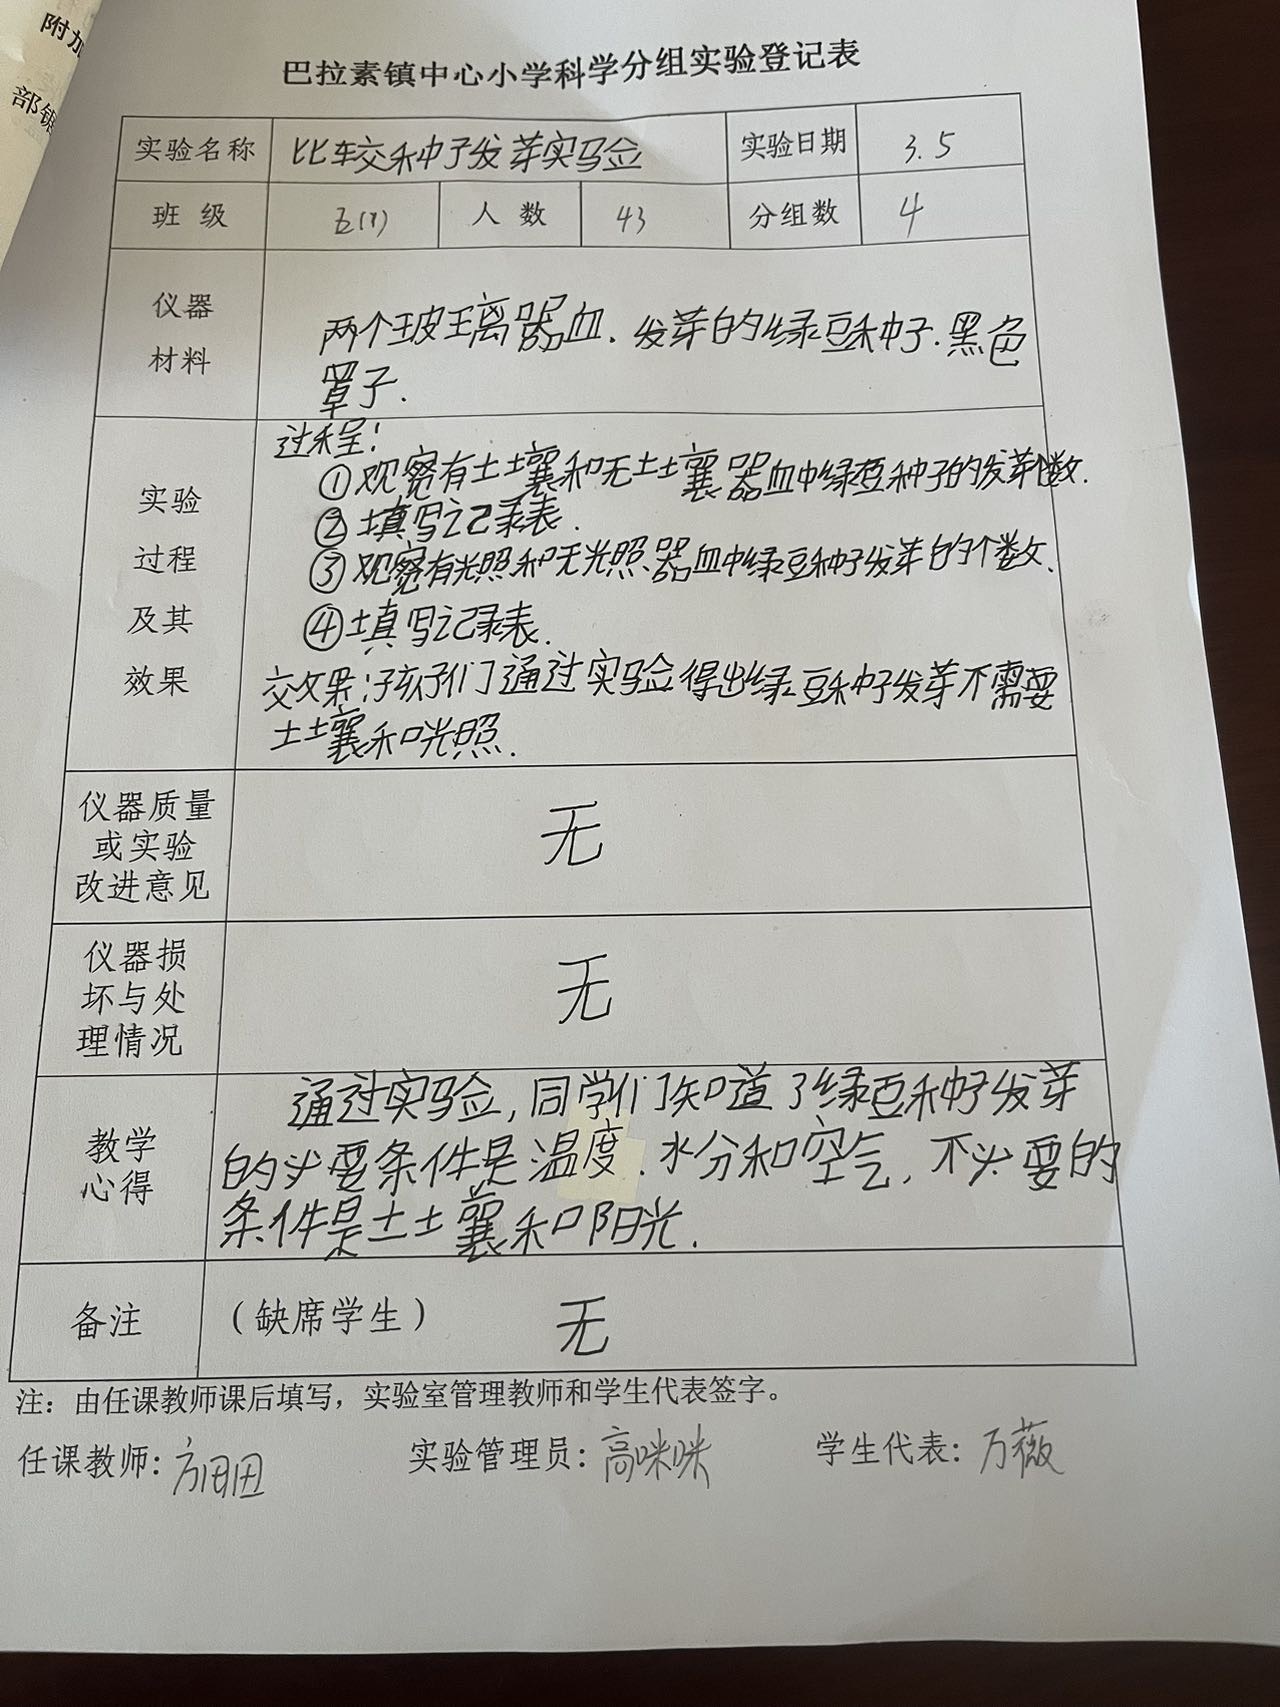 附加
部锯
巴拉素镇中心小学科学分组实验登记表
实验名称 比较种子发芽实验 实验日期 3.5
班级 五(1) 人数 43 分组数 4
仪器
材料
两个玻璃器皿.发芽的绿豆种子.黑色
罩子.
实验
过程
及其
效果
过程:
①观察有土壤和无土壤器皿中绿豆种子的发芽个数.
②填写记录表.
③观察有光照和无光照器皿中绿豆种子发芽的个数.
④填写记录表.
效果:孩子们通过实验得出绿豆种子发芽不需要
土壤和光照.
仪器质量
或实验
改进意见
无
仪器损
坏与处
理情况
无
教学
心得
通过实验,同学们知道了绿豆种子发芽
的必要条件是温度.水分和空气,不必要的
条件是土壤和阳光.
备注 (缺席学生) 无
注:由任课教师课后填写,实验室管理教师和学生代表签字。
任课教师: 实验管理员:高咪咪 学生代表:万薇